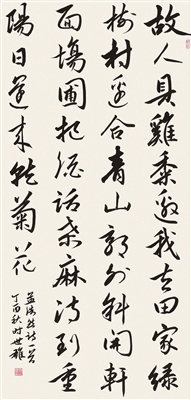 故人具雞黍邀我至田家綠
樹村邊合青山郭外斜開軒
面場圃把酒話桑麻待到重
陽日還來就菊花
孟浩然詩一首
丁酉秋時世雄